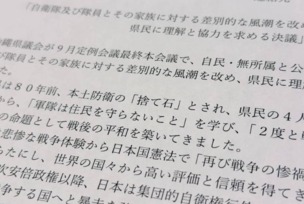 「自衛隊及び隊員とその家族に対する差別的な風潮を改め
県民に理解と協力を求める決議」
縄県議会が9月定例会議最終本会議で、自民・無所属と公
隊員とその家族に対する差別的な風潮を改め、県民に理
た。
は80年前、本土防衛の「捨て石」とされ、県民の4人
から、「軍隊は住民を守らないこと」を学び、「2度と
の命題として戦後の平和を築いてきました。
悲惨な戦争体験から日本国憲法で「再び戦争の惨禍
らたにし、世界の国々から高い評価と信頼を得てき
次安倍政権以降、日本は集団的自衛権行使
争する国へと暴走を